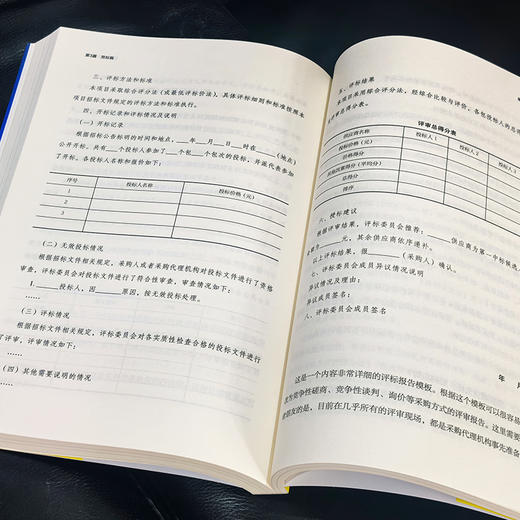 第3篇 完标篇
三、评标方法和标准
本项目采取综合评分法（或最低评标价法），具体评标细则和标准按照本
项目招标文件规定的评标方法和标准执行。
四、开标记录和评标情况及说明
（一）开标记录
根据招标公告标明的时间和地点，___年___月___日___时在___（地点）
公开开标。共有___个投标人参加了___个包___包次的投标，并派代表参加
了开标。各投标人名称和报价如下：
序号 投标人名称 投标价格（元）
1
2
3
（二）无效投标情况
根据招标文件相关规定，采购人或者采购代理机构对投标文件进行了资格
审查，评标委员会对投标文件进行了符合性审查，审查情况如下：
1.______投标人，因______原因，按无效投标处理。
……
（三）评标情况
根据招标文件相关规定，评标委员会对各实质性检查合格的投标文件进行
了评审，评审情况如下：
……
（四）其他需要说明的情况
五、评标结果
本项目采用综合评分法，经综合比较与评价，各包投标人的总得
评审总得分表
供应商名称 投标人1 投标人2 投标人3
投标价格（元）
价格得分
其他因素得分（平均分）
总得分
排序
六、授标建议
根据评审结果，评标委员会推荐：______供应商为第一中标候选
______元，其余供应商依序递补。
以上评标结果，报______（采购人）确认。
七、评标委员会成员异议情况说明
异议情况及理由：
异议成员签名：
八、评标委员会成员签名
年 月
这是一个内容非常详细的评标报告模板。根据这个模板可以很容易
改为竞争性磋商、竞争性谈判、询价等采购方式的评审报告。这里需要
者朋友的是，目前在几乎所有的评审现场，都是采购代理机构事先准备